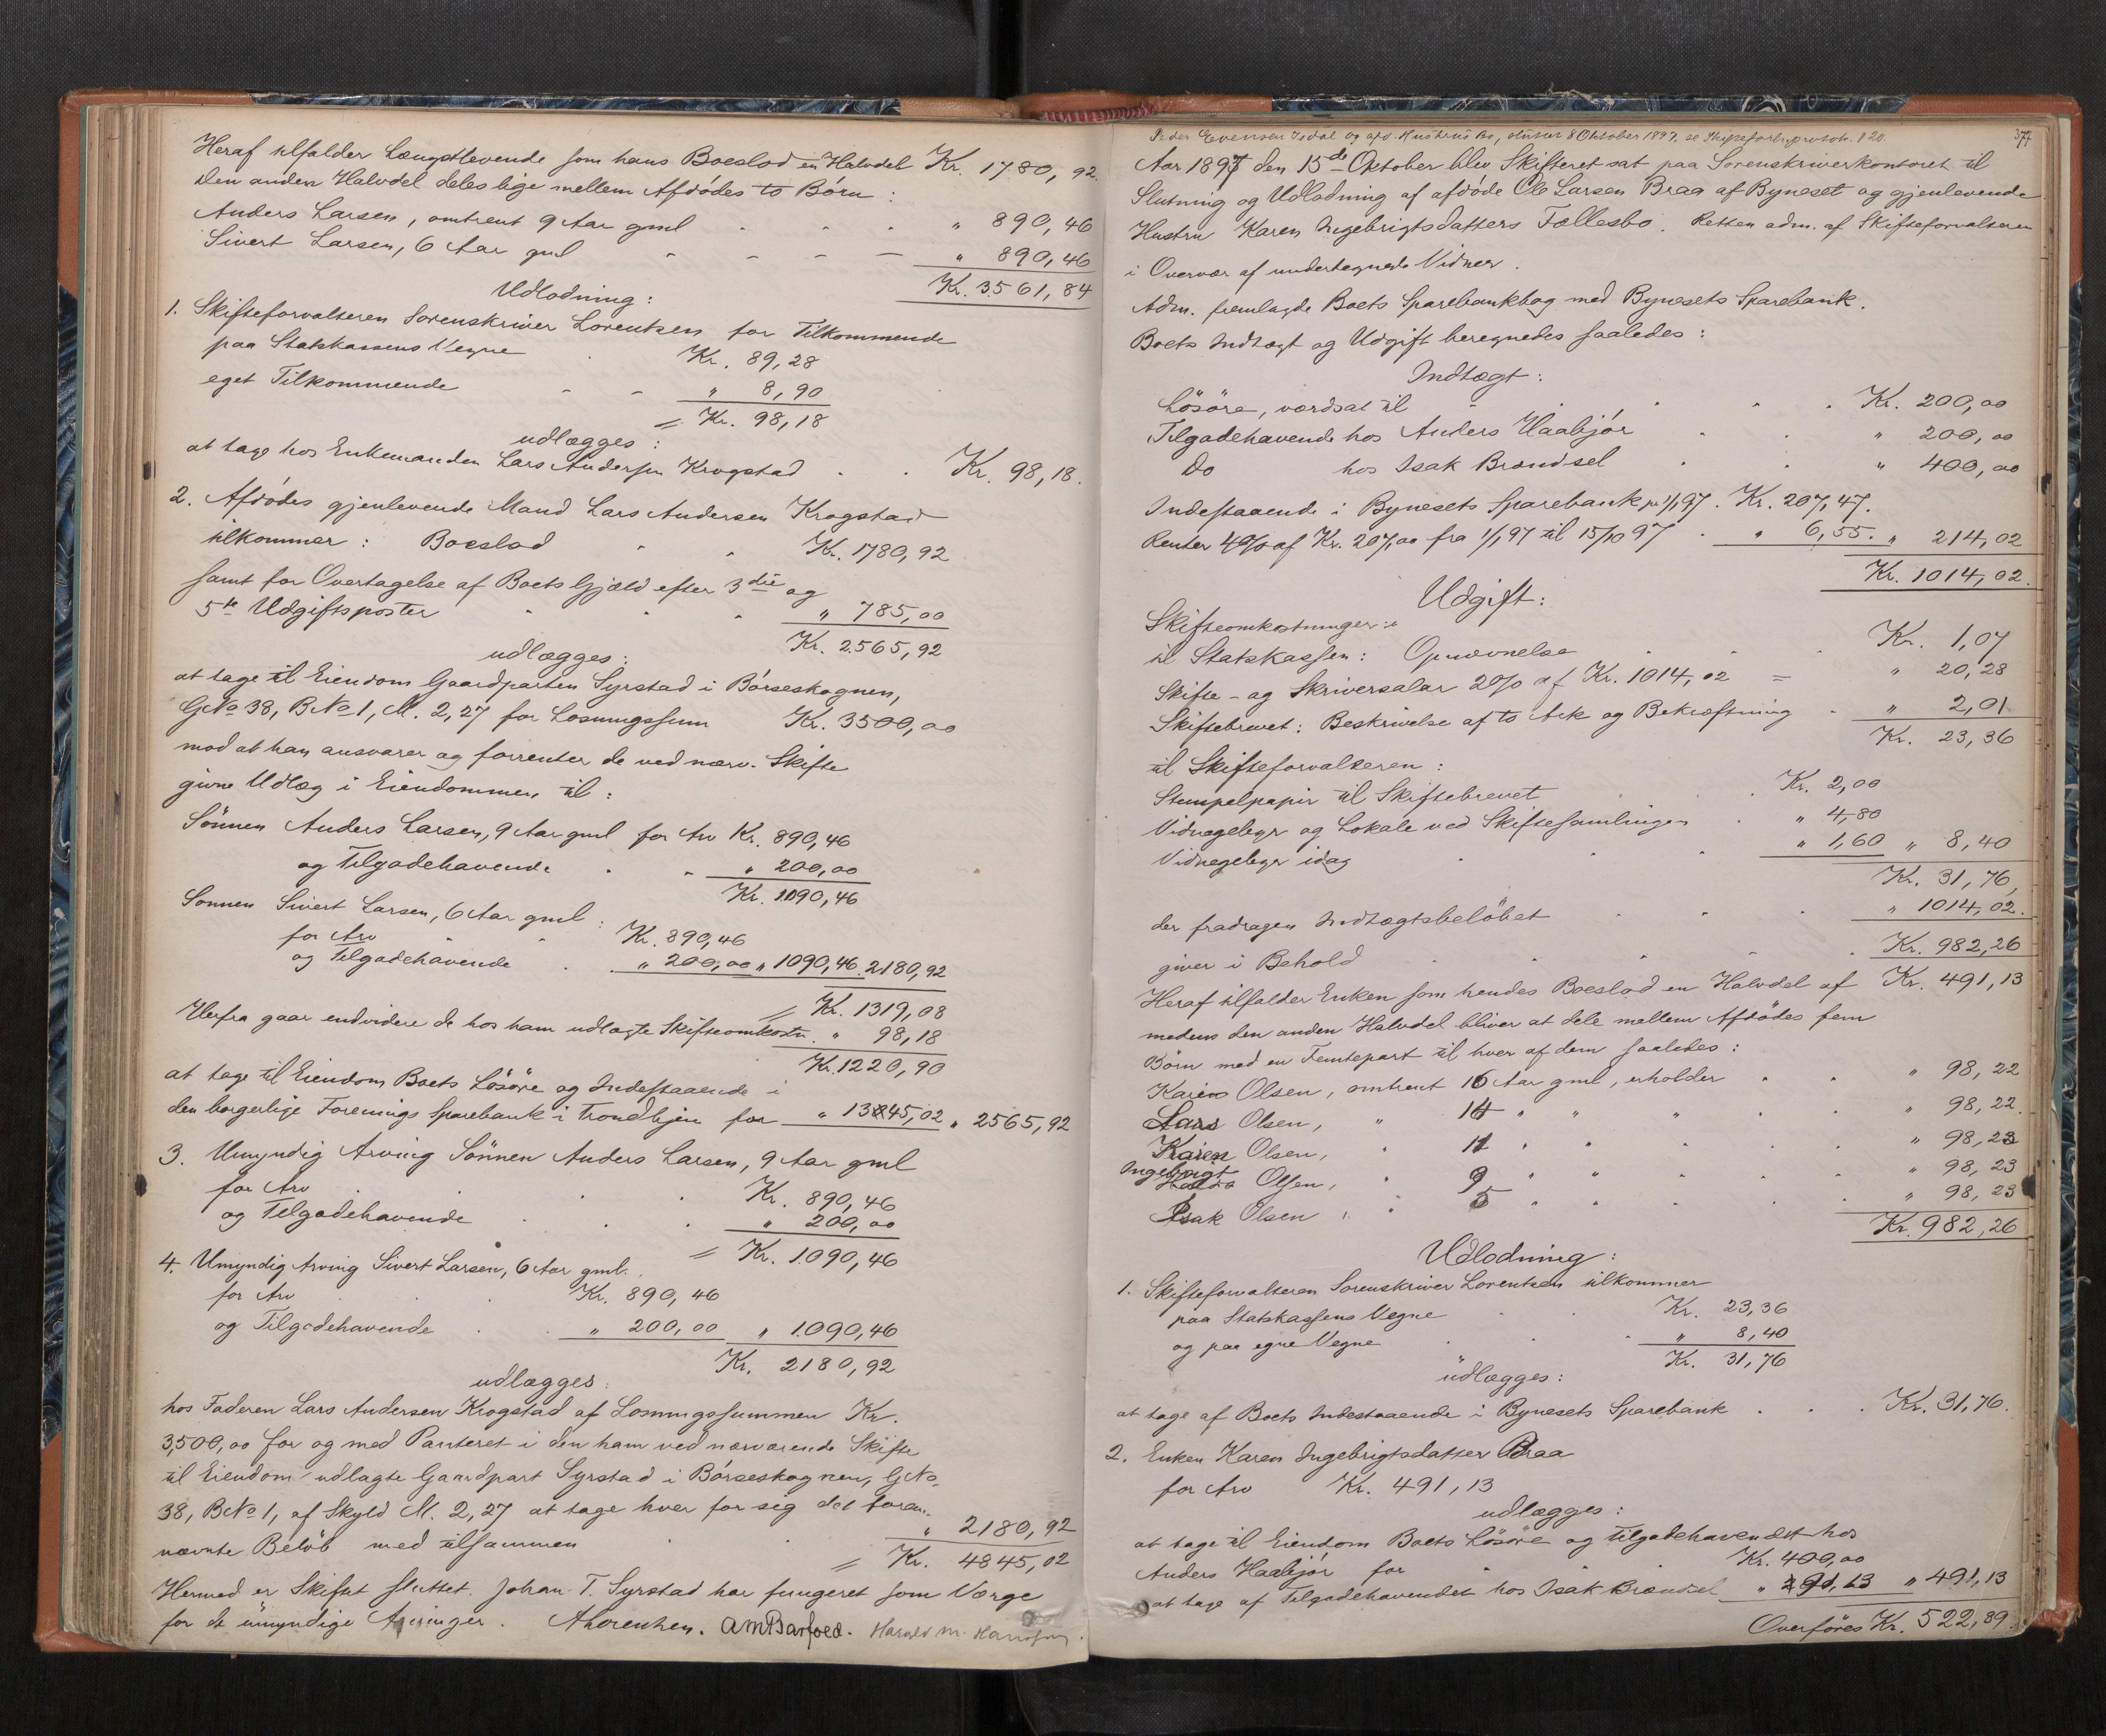 Heraf tilfalder Længstlevende som hans Boeslod en Halvdel Kr. 1780,92.
Den anden Halvdel deles lige mellem Afdødes to Børn:
Anders Larsen, omtrent 9 Aar gml " 890,46
Sivert Larsen, 6 Aar gml " 890,46
Kr. 3561,84
Udlodning:
1. Skifteforvalteren Sorenskriver Lorentzen for Tilkommende
paa Statskassens Vegne Kr. 89,28
eget Tilkommende " 8,90
= Kr. 98,18
udlægges:
at tage hos Enkemanden Lars Andersen Krogstad Kr. 98,18.
2. Afdødes gjenlevende Mand Lars Andersen Krogstad
tilkommer: Boeslod Kr. 1780,92
samt for Overtagelse af Boets Gjæld efter 3die og
5te Udgiftsposter " 785,00
Kr. 2565,92
udlægges:
at tage til Eiendom Gaardparten Syrstad i Børseskognen,
GNo 38, BNo 1, M. 2,27 for Løsningssum Kr. 3500,00
mod at han ansvarer og forrenter de ved nærv. Skifte
givne Udlæg i Eiendommen til:
Sønnen Anders Larsen, 9 Aar gml for Arv Kr. 890,46
og Tilgodehavende " 200,00
Kr. 1090,46
Sønnen Sivert Larsen, 6 Aar gml:
for Arv Kr. 890,46
og Tilgodehavende " 200,00 " 1090,46 2180,92
= Kr. 1319,08
Herfra gaar endvidere de hos ham udlagte Skifteomkostn. " 98,18
Kr. 1220,90
at tage til Eiendom Boets Løsøre og Indestaaende i
den borgerlige Forenings Sparebank i Trondhjem for " 1345,02 " 2565,92
3. Umyndig Arving Sønnen Anders Larsen, 9 Aar gml
for Arv Kr. 890,46
og Tilgodehavende " 200,00
= Kr. 1090,46
4. Umyndig Arving Sivert Larsen, 6 Aar gml.
for Arv Kr. 890,46
og Tilgodehavende " 200,00 " 1090,46
Kr. 2180,92
udlægges:
hos Faderen Lars Andersen Krogstad af Løsningssummen Kr.
3,500,00 for og med Panteret i den ham ved nærværende Skifte
til Eiendom udlagte Gaardpart Syrstad i Børseskognen, GNo
38, BNo 1, af Skyld M. 2,27 at tage hver for sig det foran-
nævnte Beløb med tilsammen " 2180,92
= Kr. 4845,02
Hermed er Skiftet sluttet. Johan T. Syrstad har fungeret som Værge
for de umyndige Arvinger. ALorentzen. AMBarfoed. Harald M. Hansen.
Peder Evensen Isdal og afd. Hustrus Bo, sluttet 8 Oktober 1897, se Skifteforhprotok. 120. 377
Aar 1897 den 15de Oktober blev Skifteret sat paa Sorenskriverkontoret til
Slutning og Udlodning af afdøde Ole Larsen Braa af Bynesset og gjenlevende
Hustru Karen Ingebrigtsdatters Fællesbo. Retten adm. af Skifteforvalteren
i Overvær af undertegnede Vidner.
Adm. fremlagde Boets Sparebankbog med Bynesets Sparebank.
Boets Indtægt og Udgift beregnedes saaledes:
Indtægt:
Løsøre, værdsat til Kr. 200,00
Tilgodehavende hos Anders Haabjør " 200,00
Do hos Isak Brændsel " 400,00
Indestaaende i Bynesets Sparebank pr 1/1 97. Kr. 207,47.
Renter 4% af Kr. 207,00 fra 1/1 97 til 15/10 97 " 6,55. " 214,02
Kr. 1014,02.
Udgift:
Skifteomkostninger:
til Statskassen: Opnævnelse Kr. 1,07
Skifte- og Skriversalar 2% af Kr. 1014,02 = " 20,28
Skiftebrevet: Beskrivelse af to Ark og Bekræftning " 2,01
Kr. 23,36
til Skifteforvalteren:
Stempelpapir til Skiftebrevet Kr. 2,00
Vidnegebyr og Lokale ved Skiftesamlingen " 4,80
Vidnegebyr idag " 1,60 " 8,40
Kr. 31,76,
der fradragen Indtægtsbeløbet " 1014,02.
giver i Behold Kr. 982,26
Heraf tilfalder Enken som hendes Boeslod en Halvdel af Kr. 491,13
medens den anden Halvdel bliver at dele mellem Afdødes fem
Børn med en Femtepart til hver af dem saaledes:
Karen Olsen, omtrent 16 Aar gml, erholder " 98,22
Lars Olsen, " 14 " " " " 98,22.
Karen Olsen, " 11 " " " 98,23
Ingebrigt Olsen, " 9 " " " 98,23
Isak Olsen " " 5 " " " 98,23
Kr. 982,26
Udlodning:
1. Skifteforvalteren Sorenskriver Lorentzen tilkommer
paa Statskassens Vegne Kr. 23,36
og paa egne Vegne " 8,40
Kr. 31,76
udlægges:
at tage af Boets Indestaaende i Bynesets Sparebank Kr. 31,76.
2. Enken Karen Ingebrigtsdatter Braa
for Arv Kr. 491,13
udlægges:
at tage til Eiendom Boets Løsøre og Tilgodehavendet hos
Anders Haabjør for Kr. 400,00
at tage af Tilgodehavendet hos Isak Brændsel " 91,13 " 491,13
Overføres Kr. 522,89.